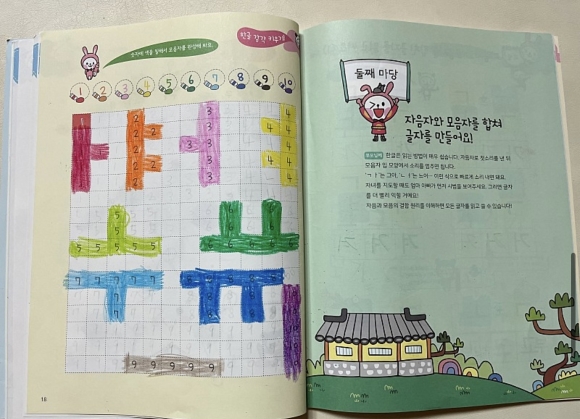 한글 감각 키우기
숫자에 색을 칠해서 모음자를 완성해 봐요.
1 2 3 4 5 6 7 8 9 10
1
2
2
2
2
2
3
3
3
3
3
3
4
4
4
4
4
4
4
5
5
5 5 5 5 5
7 7 7 7 7
7
7
9 9 9 9 9
18
둘째 마당
자음자와 모음자를 합쳐
글자를 만들어요!
한글은 읽는 방법이 매우 쉽습니다. 자음자로 첫소리를 낸 뒤
모음자 입 모양에서 소리를 멈추면 됩니다.
자녀를 지도할 때도 엄마 아빠가 먼저 시범을 보여주세요. 그러면 글자
를 더 빨리 익힐 거예요!
자음과 모음의 결합 원리를 이해하면 모든 글자를 읽고 쓸 수 있습니다!